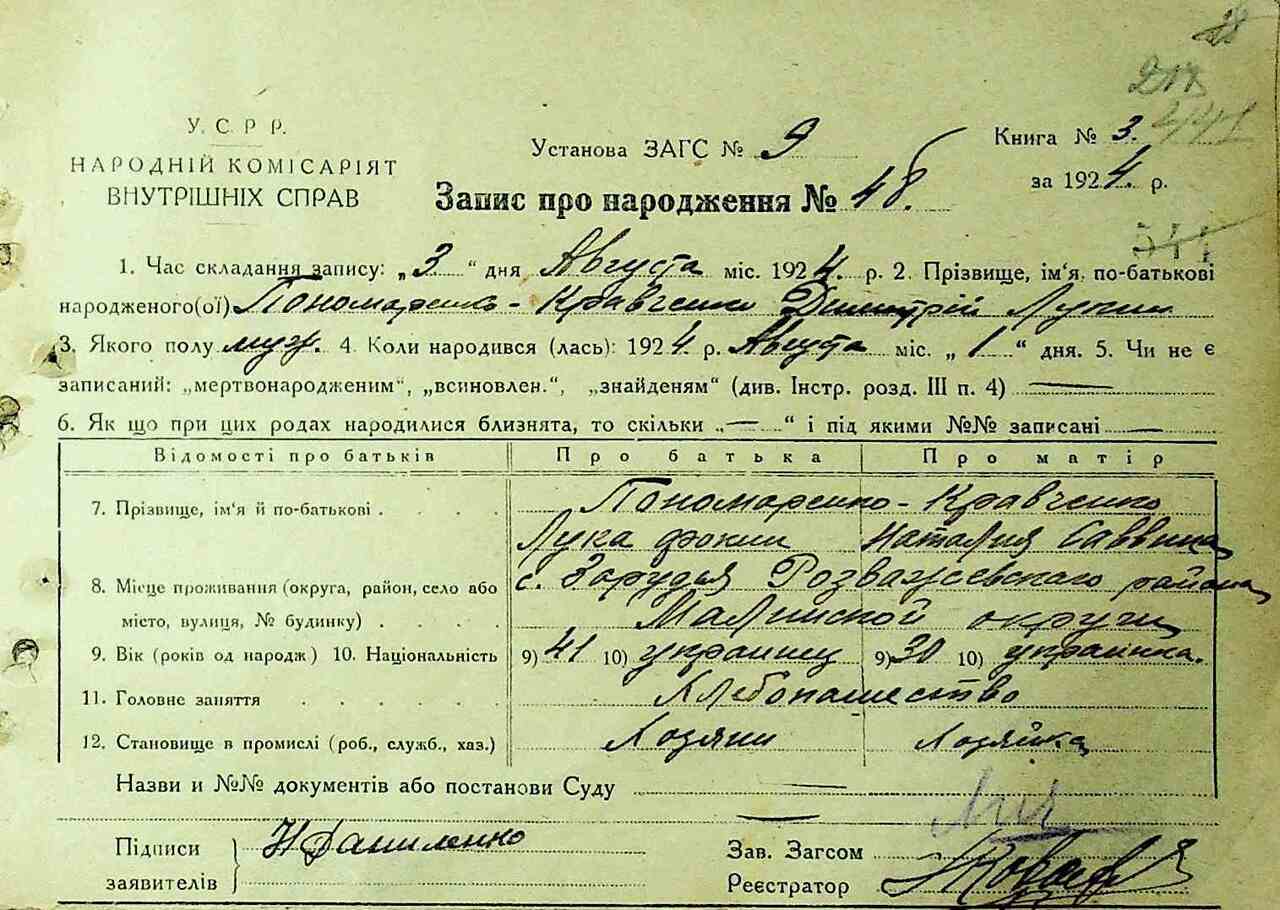 28
217
441
У. С. Р. Р.
НАРОДНІЙ КОМІСАРІЯТ
ВНУТРІШНІХ СПРАВ
Установа ЗАГС № 9
Книга № 3.
за 1924. р.
Запис про народження № 48.
544
1. Час складання запису: „3“ дня Августа міс. 1924. р. 2. Прізвище, ім'я, по-батькові
народженого(ої) Пономаренко-Кравченко Димитрій Лукин
3. Якого полу муж. 4. Коли народився (лась): 1924. р. Августа міс. „1“ дня. 5. Чи не є
записаний: „мертвонародженим“, „всиновлен.“, „знайденям“ (див. Інстр. розд. III п. 4) —
6. Як що при цих родах народилися близнята, то скільки „—“ і під якими №№ записані —
Відомості про батьків Про батька Про матір
7. Прізвище, ім'я й по-батькові . . . . Пономаренко-Кравченко
Лука Фокин Наталия Саввина
8. Місце проживання (округа, район, село або с. Зарудья Розважевскаго района
місто, вулиця, № будинку) . . . . Малинской округи
9. Вік (років од народж) 10. Національність 9) 41 10) украинец 9) 30 10) украинка.
11. Головне заняття . . . . . . Хлебопашество
12. Становище в промислі (роб., служб., хаз.) Хозяин Хозяйка
Назви и №№ документів або постанови Суду —
Підписи Н Даниленко
заявителів
Зав. Загсом
Реєстратор